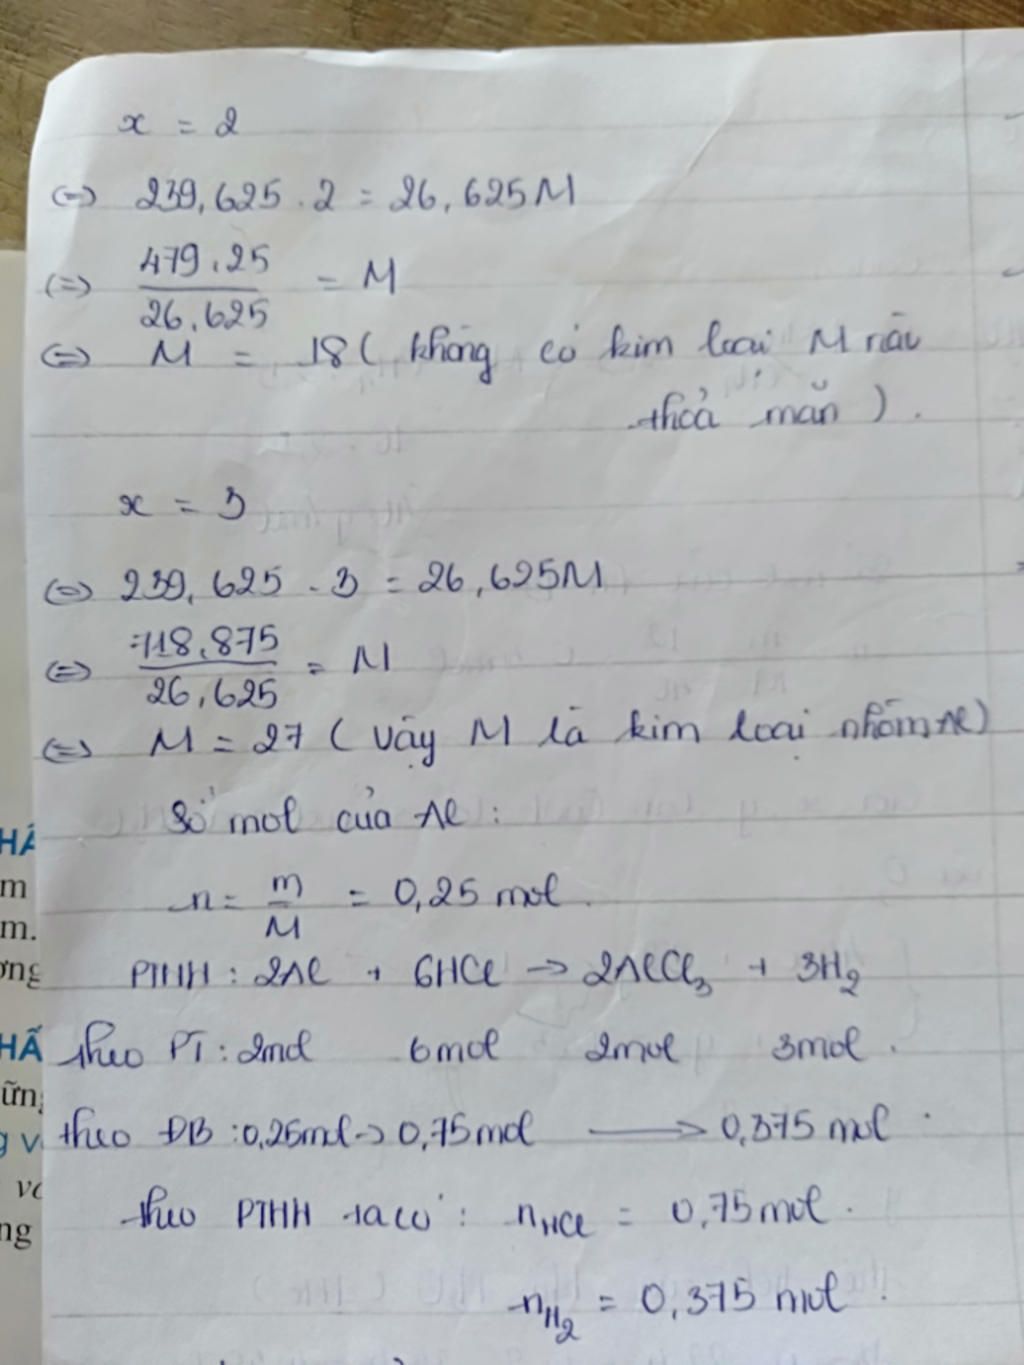 x = 2
(=) 239,625 . 2 = 26,625M
(=) 479,25 / 26,625 = M
(=) M = 18 ( không có kim loại M nào
thoả mãn ) .
x = 3
(=) 239,625 . 3 = 26,625M
(=) 718,875 / 26,625 = M
(=) M = 27 ( vậy M là kim loại nhôm Al )
Số mol của Al :
n = m / M = 0,25 mol .
PTHH : 2Al + 6HCl -> 2AlCl3 + 3H2
theo PT : 2mol 6mol 2mol 3mol .
theo ĐB : 0,25mol -> 0,75mol -> 0,375 mol .
theo PTHH ta có : nHCl = 0,75mol .
nH2 = 0,375 mol .
HÃ
m
m.
ơng
HẤ
g v
ng